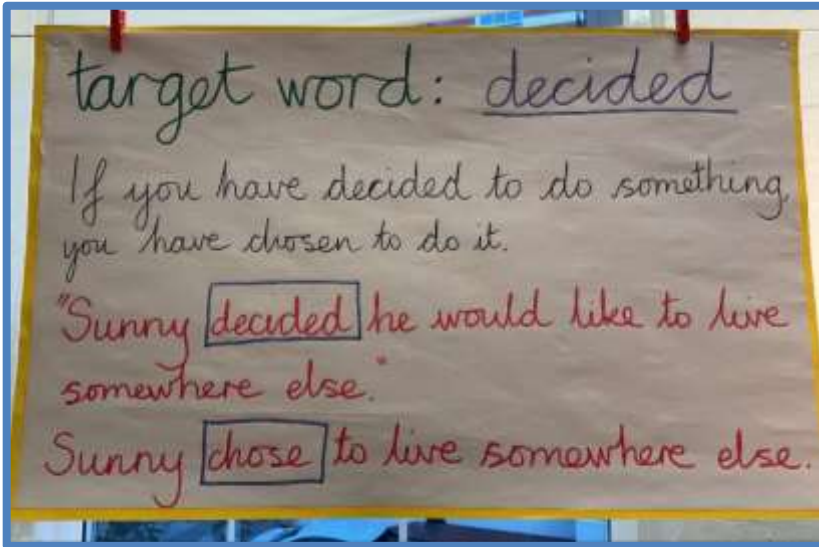 target word: decided
If you have decided to do something,
you have chosen to do it.
"Sunny decided he would like to live
somewhere else."
Sunny chose to live somewhere else.